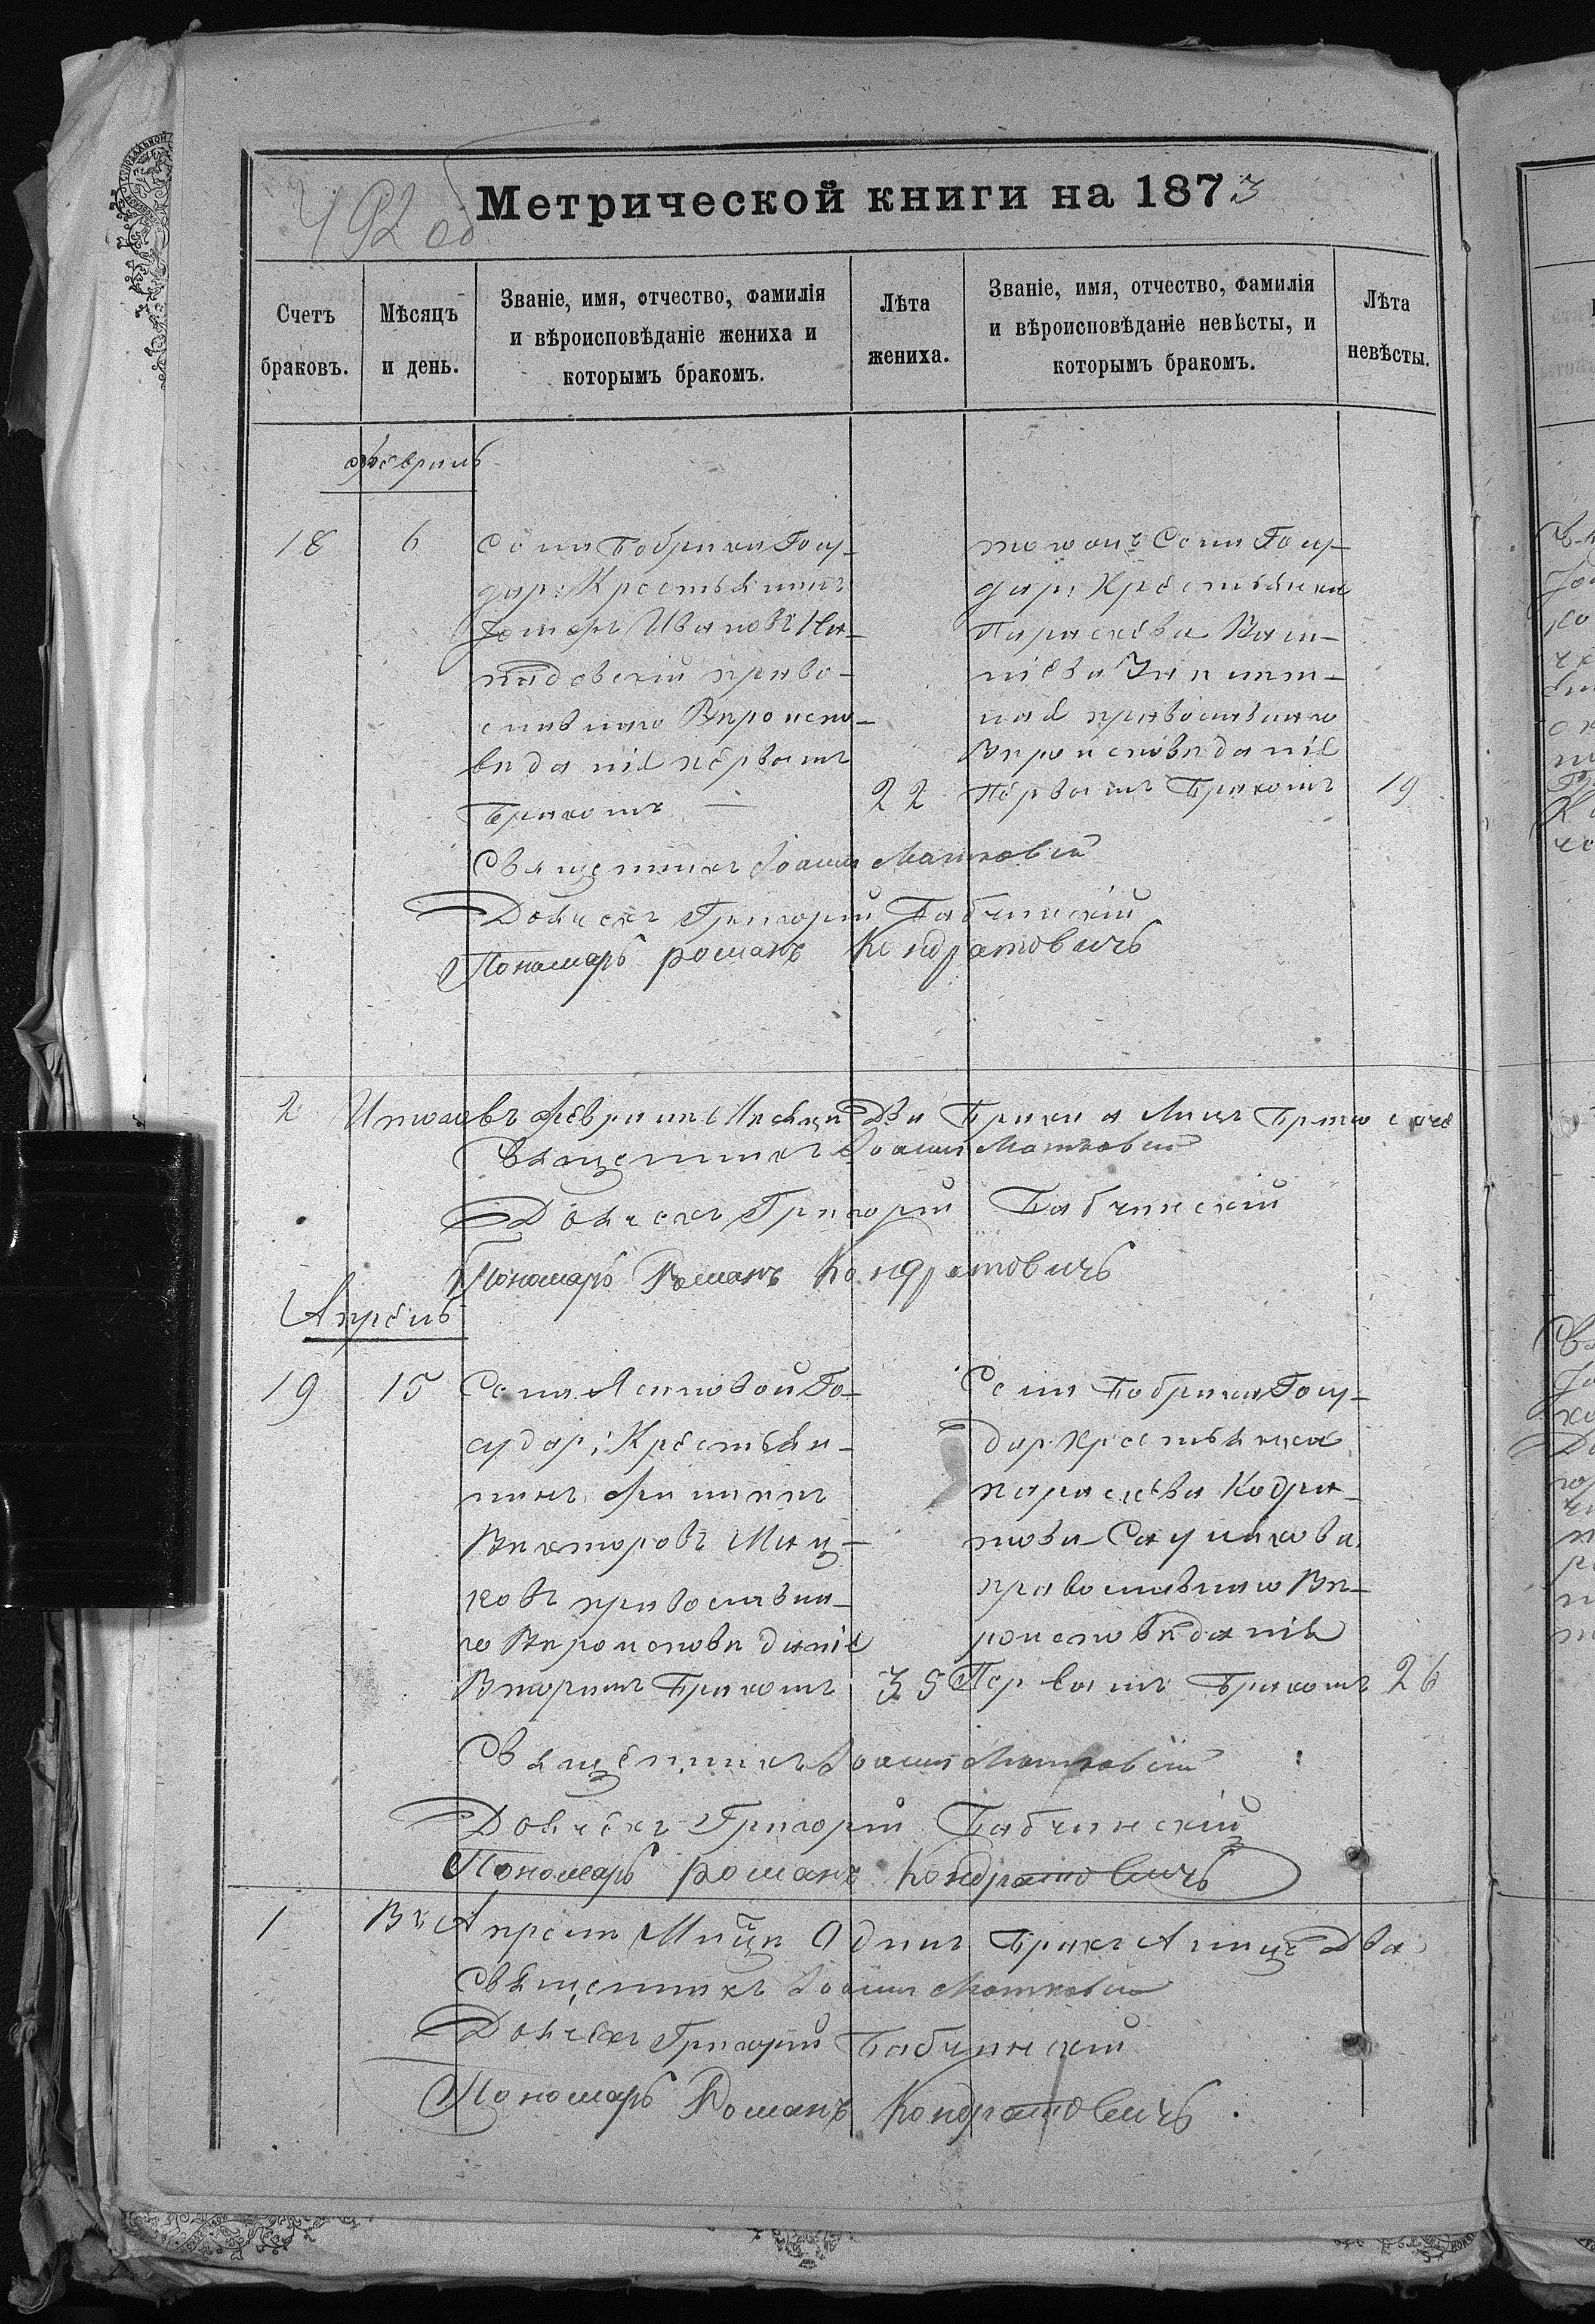 492 об
Метрической книги на 1873
Счетъ браковъ.
Мѣсяцъ и день.
Званіе, имя, отчество, фамилія и вѣроисповѣданіе жениха и которымъ бракомъ.
Лѣта жениха.
Званіе, имя, отчество, фамилія и вѣроисповѣданіе невѣсты, и которымъ бракомъ.
Лѣта невѣсты.
Февраль
18 6
Села Бобрика Госу-
дар: Крестьянинъ
Ивановъ
православнаго Вѣроиспо-
вѣданіе первымъ
Бракомъ — 22
Села Госу-
дар: Крестьянка
Параскева
православнаго
Вѣроисповѣданіе
Первымъ Бракомъ 19
Священникъ Іоаннъ Матковскій
Дьячекъ Григорій Бабчинскій
Пономарь романъ Кондратовичъ
2 Итого въ Февралѣ Мѣсяцѣ Два Брака а Лицъ
Священникъ Іоаннъ Матковскій
Дьячекъ Григорій Бабчинскій
Пономарь Романъ Кондратовичъ
Апрель
19 15
Села Ясиновой Го-
судар: Крестьян-
инъ Филипъ
Викторовъ Мац-
ковъ православна-
го Вѣроисповѣданіе
Вторымъ Бракомъ 35
Села Бобрика Госу-
дар: крестьянка
параскева Кодра-
това
православнаго Вѣ-
роисповѣданія
Первымъ Бракомъ 26
Священникъ Іоаннъ Матковскій
Дьячекъ Григорій Бабчинскій
Пономарь романъ Кондратовичъ
1 Въ Апрелѣ Мцѣ Одинъ Бракъ А лицъ Два
Священникъ Іоаннъ Матковскій
Дьячекъ Григорій Бабчинскій
Пономарь Романъ Кондратовичъ